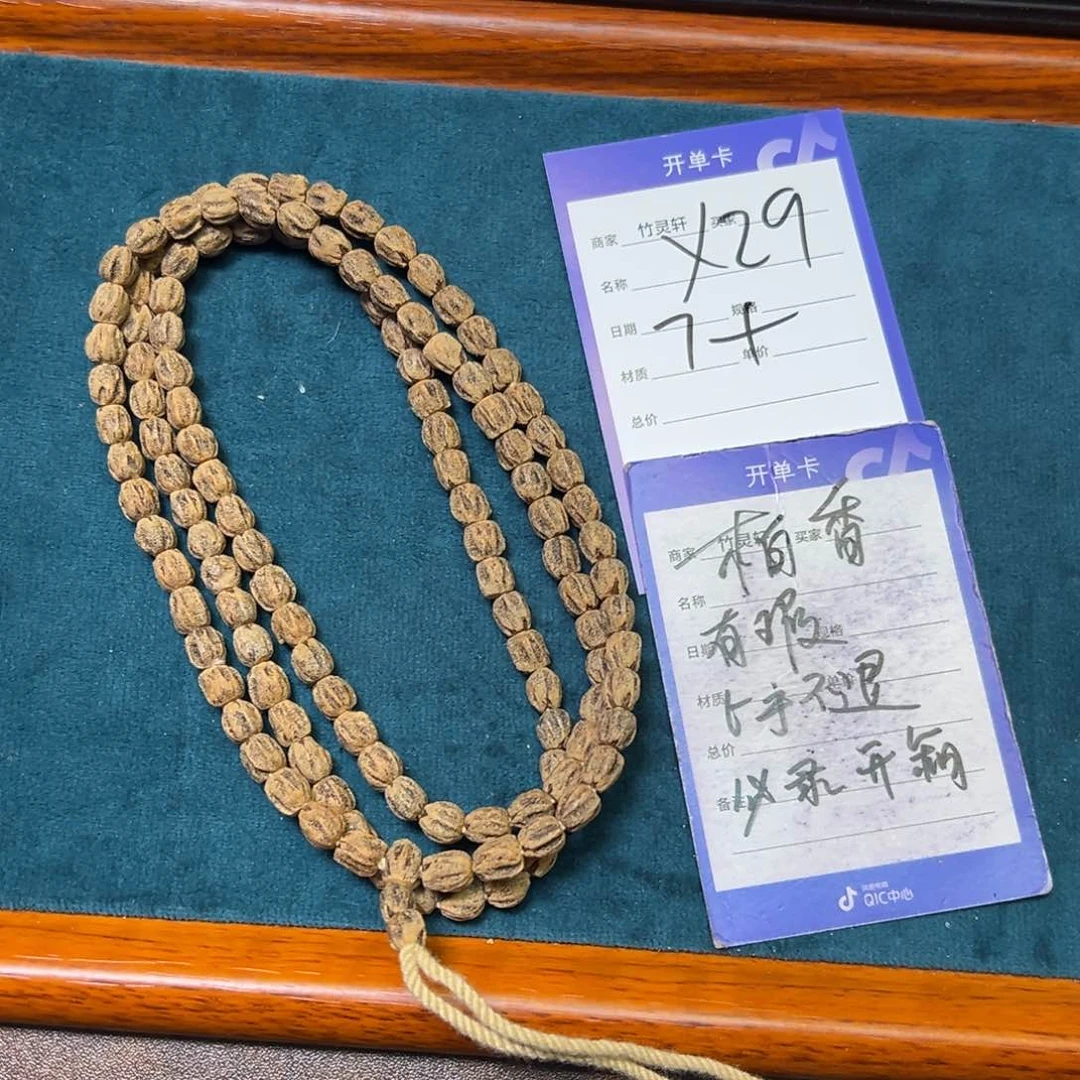 开单卡
商家 竹灵轩 买家
X29
名称
日期 规格
7+
材质 单价
总价
开单卡
商家 竹灵轩 买家
柏香
名称
有瑕
日期 规格
材质 单价
上手不退
总价
备注
必录开箱
抖音电商
QIC中心